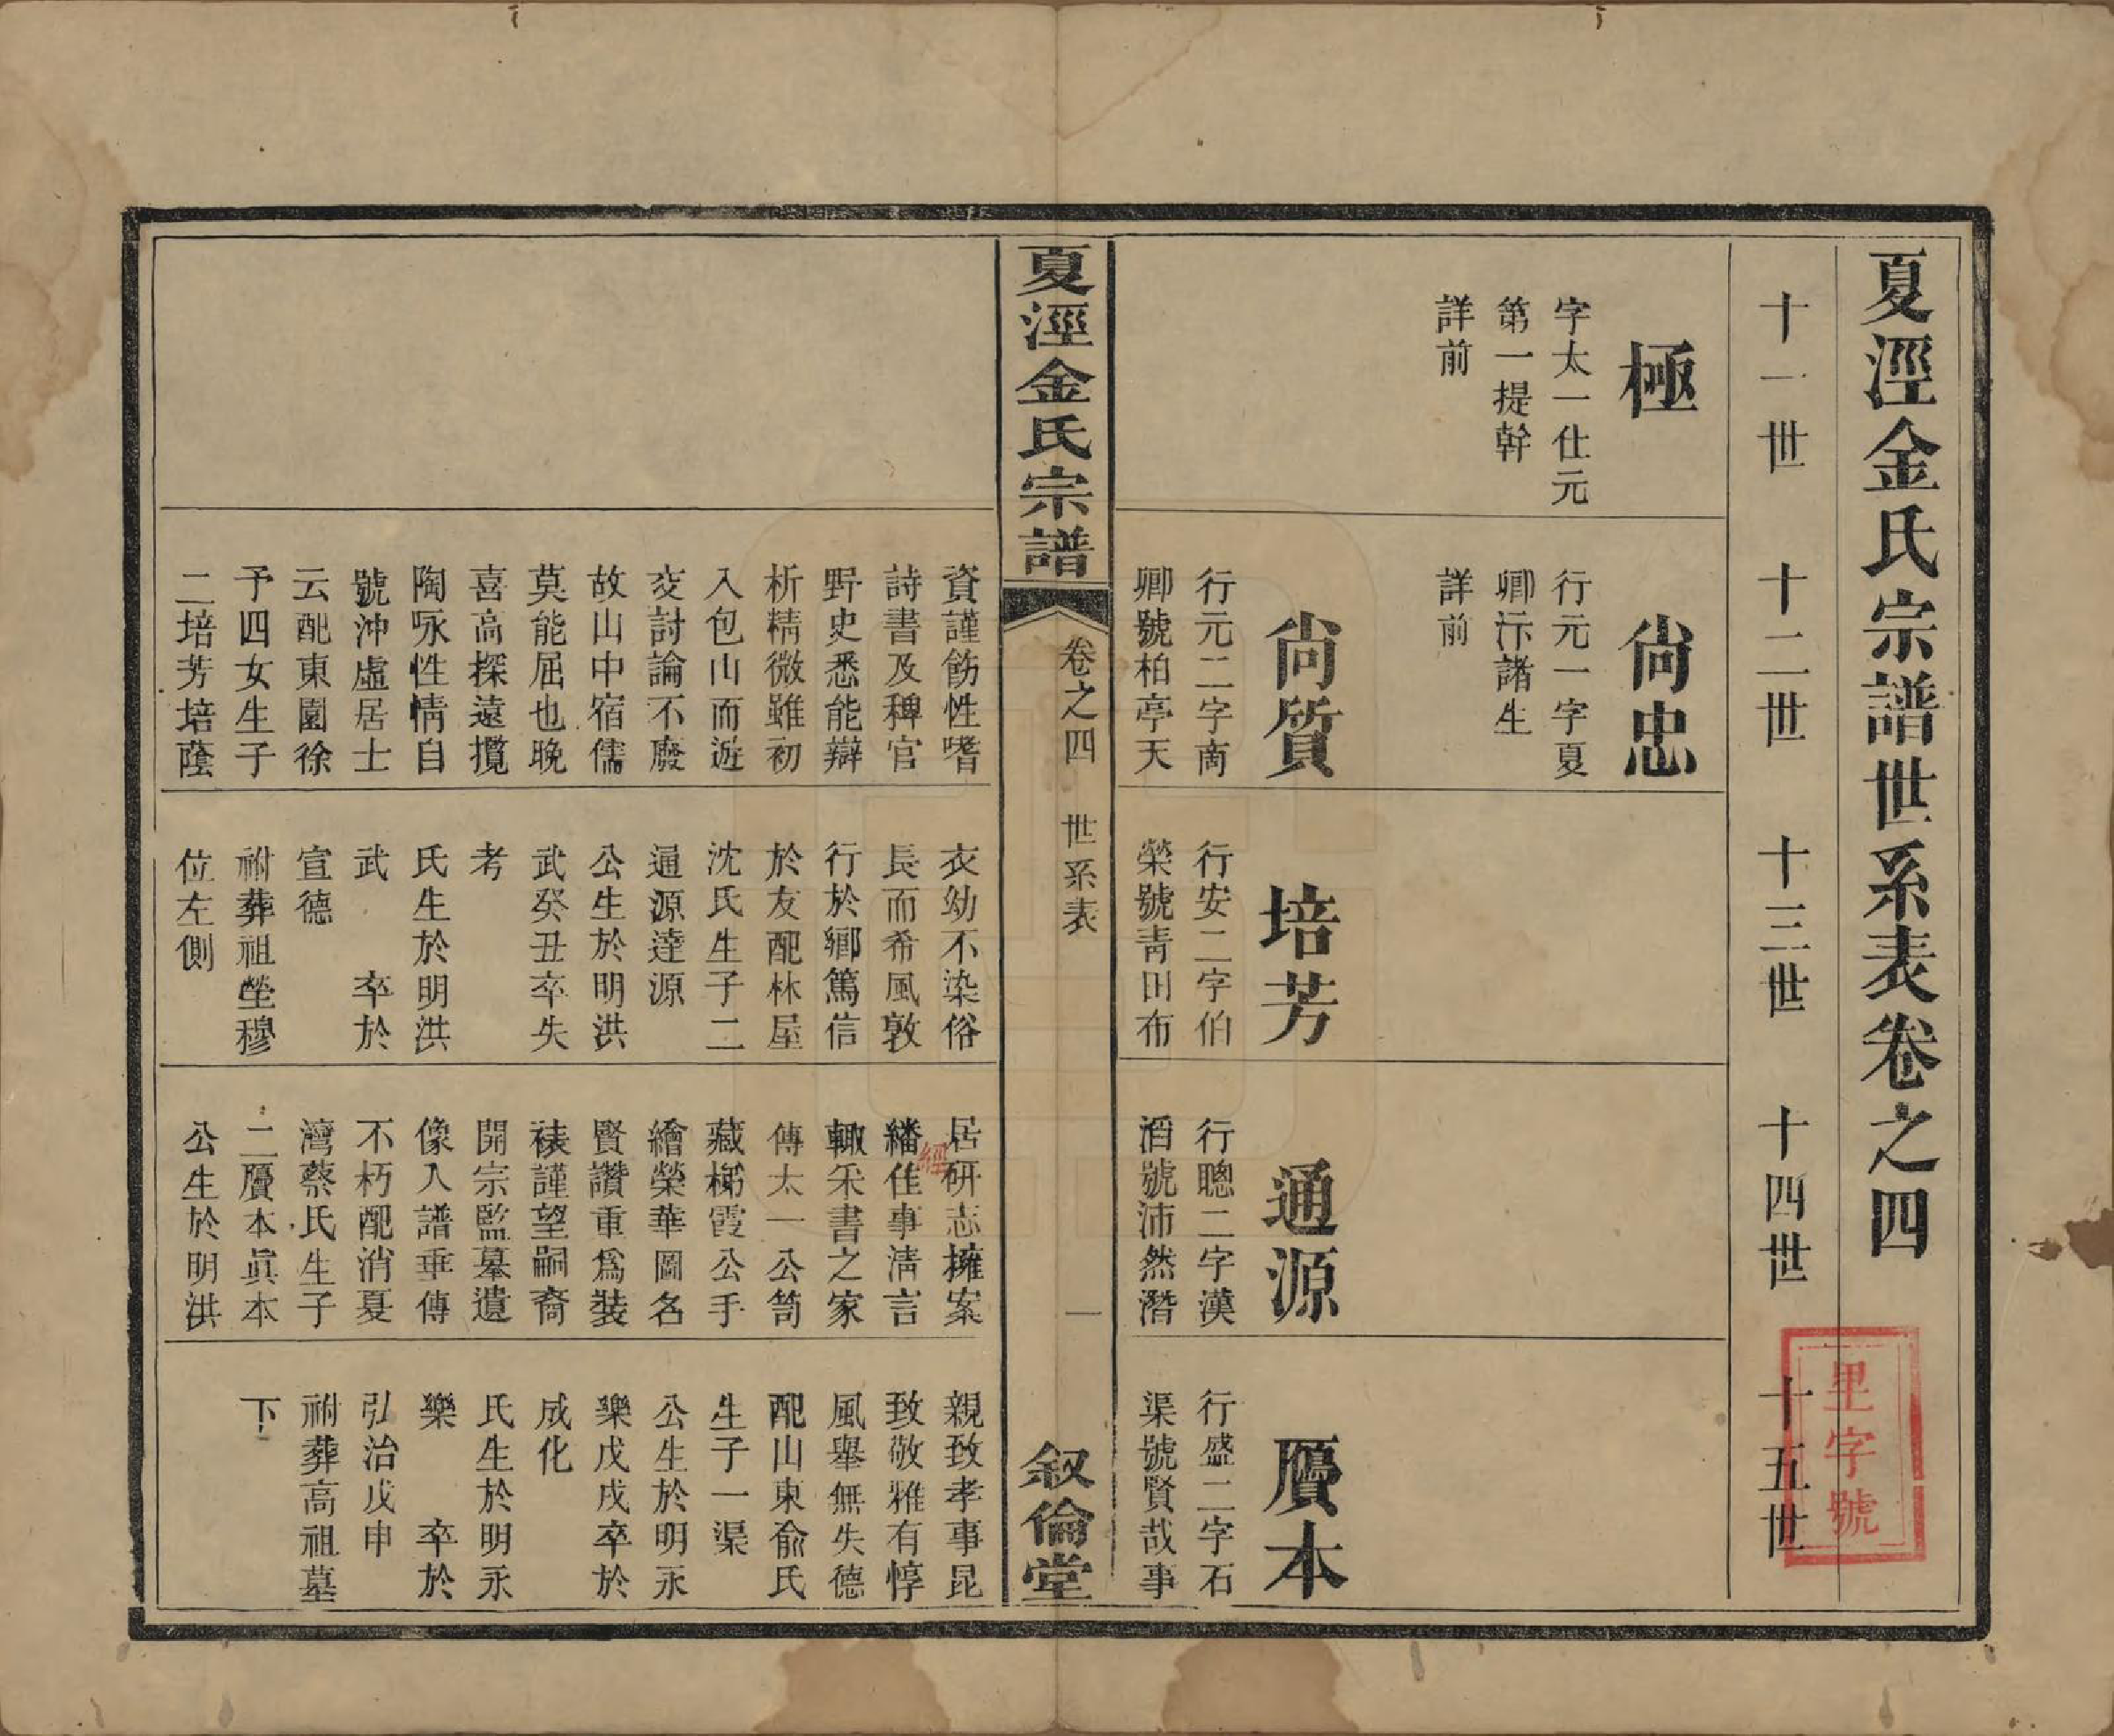 夏涇金氏宗譜世系表卷之四
十一世
十二世
十三世
十四世
十五世
里字號
極
字太一仕元
第一提幹
詳前
尙忠
行元一字夏
卿汴諸生
詳前
尙質
行元二字南
卿號柏亭天
培芳
行安二字伯
榮號靑田布
通源
行聰二字漢
酒號沛然潛
贋本
行盛二字石
渠號賢哉事
夏涇金氏宗譜
卷之四
世系表
一
叙倫堂
資謹飭性嗜
詩書及稗官
野史悉能辯
析精微雖初
入包山而遊
交討論不廢
故山中宿儒
莫能屈也晚
喜高探遠攬
陶冡性情自
號沖虛居士
云配東園徐
予四女生子
二培芳培蔭
衣幼不染俗
長而希風敦
行於鄉篤信
於友配林屋
沈氏生子二
通源達源
公生於明洪
武癸丑卒失
考
氏生於明洪
武　卒於
宣德
祔葬祖塋穆
位左側
居研志擁案
經
繙佳事淸言
輙采書之家
傳太一公笥
藏梯霞公手
繪榮華圖名
賢讚重爲裝
裱謹望嗣裔
開宗監摹遺
像入譜垂傳
不朽配消夏
灣蔡氏生子
二贋本眞本
公生於明洪
親致孝事昆
致敬雅有惇
風舉無失德
配山東俞氏
生子一渠
公生於明永
樂戊戌卒於
成化
氏生於明永
樂　卒於
弘治戊申
祔葬高祖墓
下